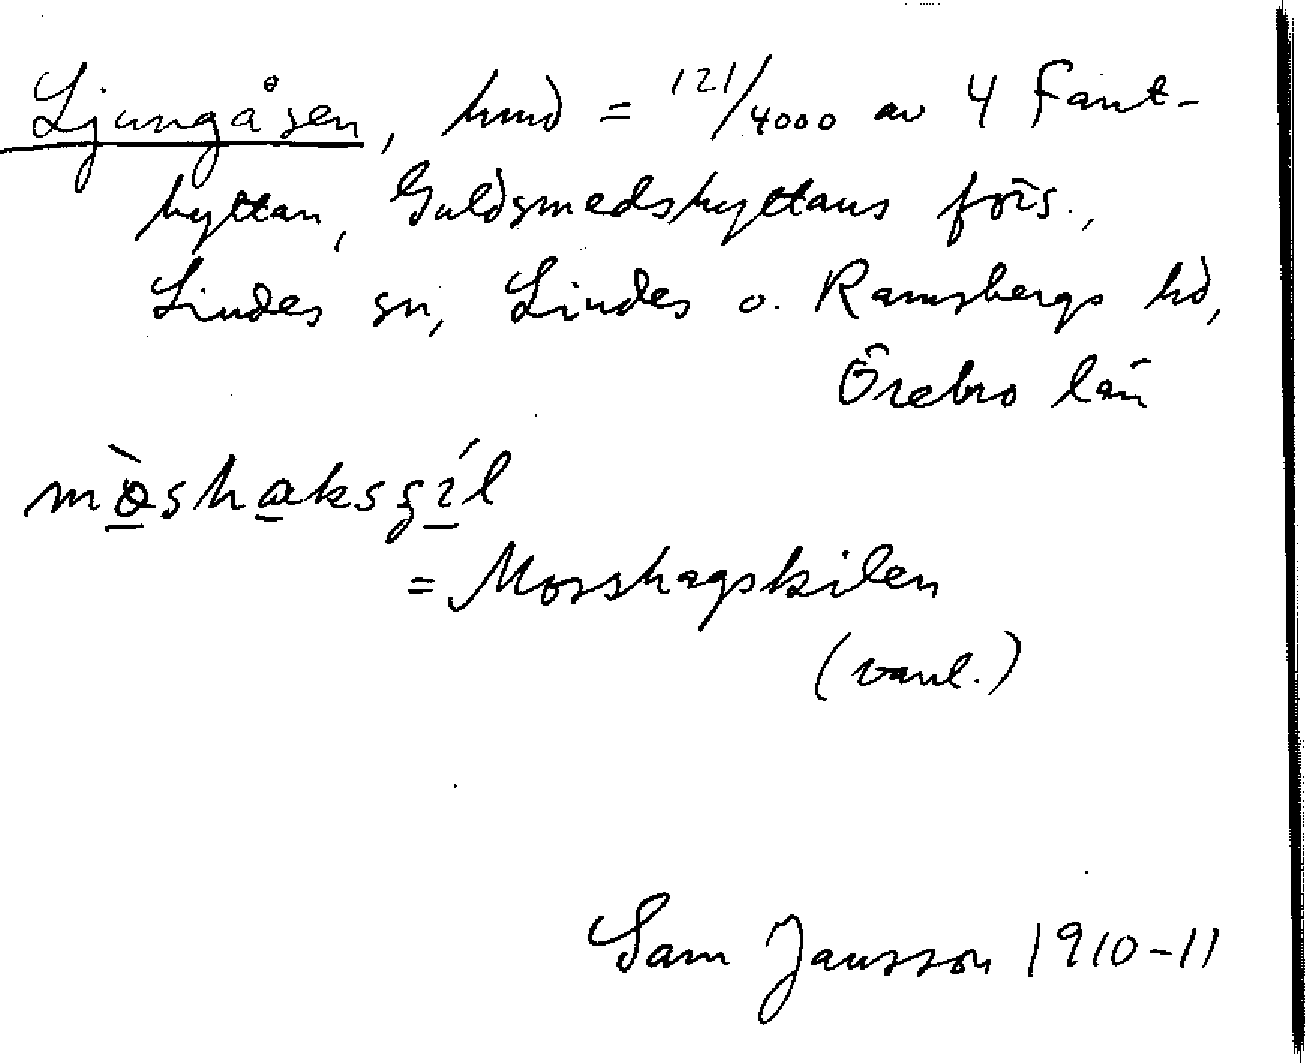 Ljungåsen, hmd = 121/4000 av 4 Fant-
hyttan, Guldsmedshyttans förs.,
Lindes sn, Lindes o. Ramsbergs hd,
Örebro län
= Morshagskilen
(vanl.)
Sam Jansson 1910-11